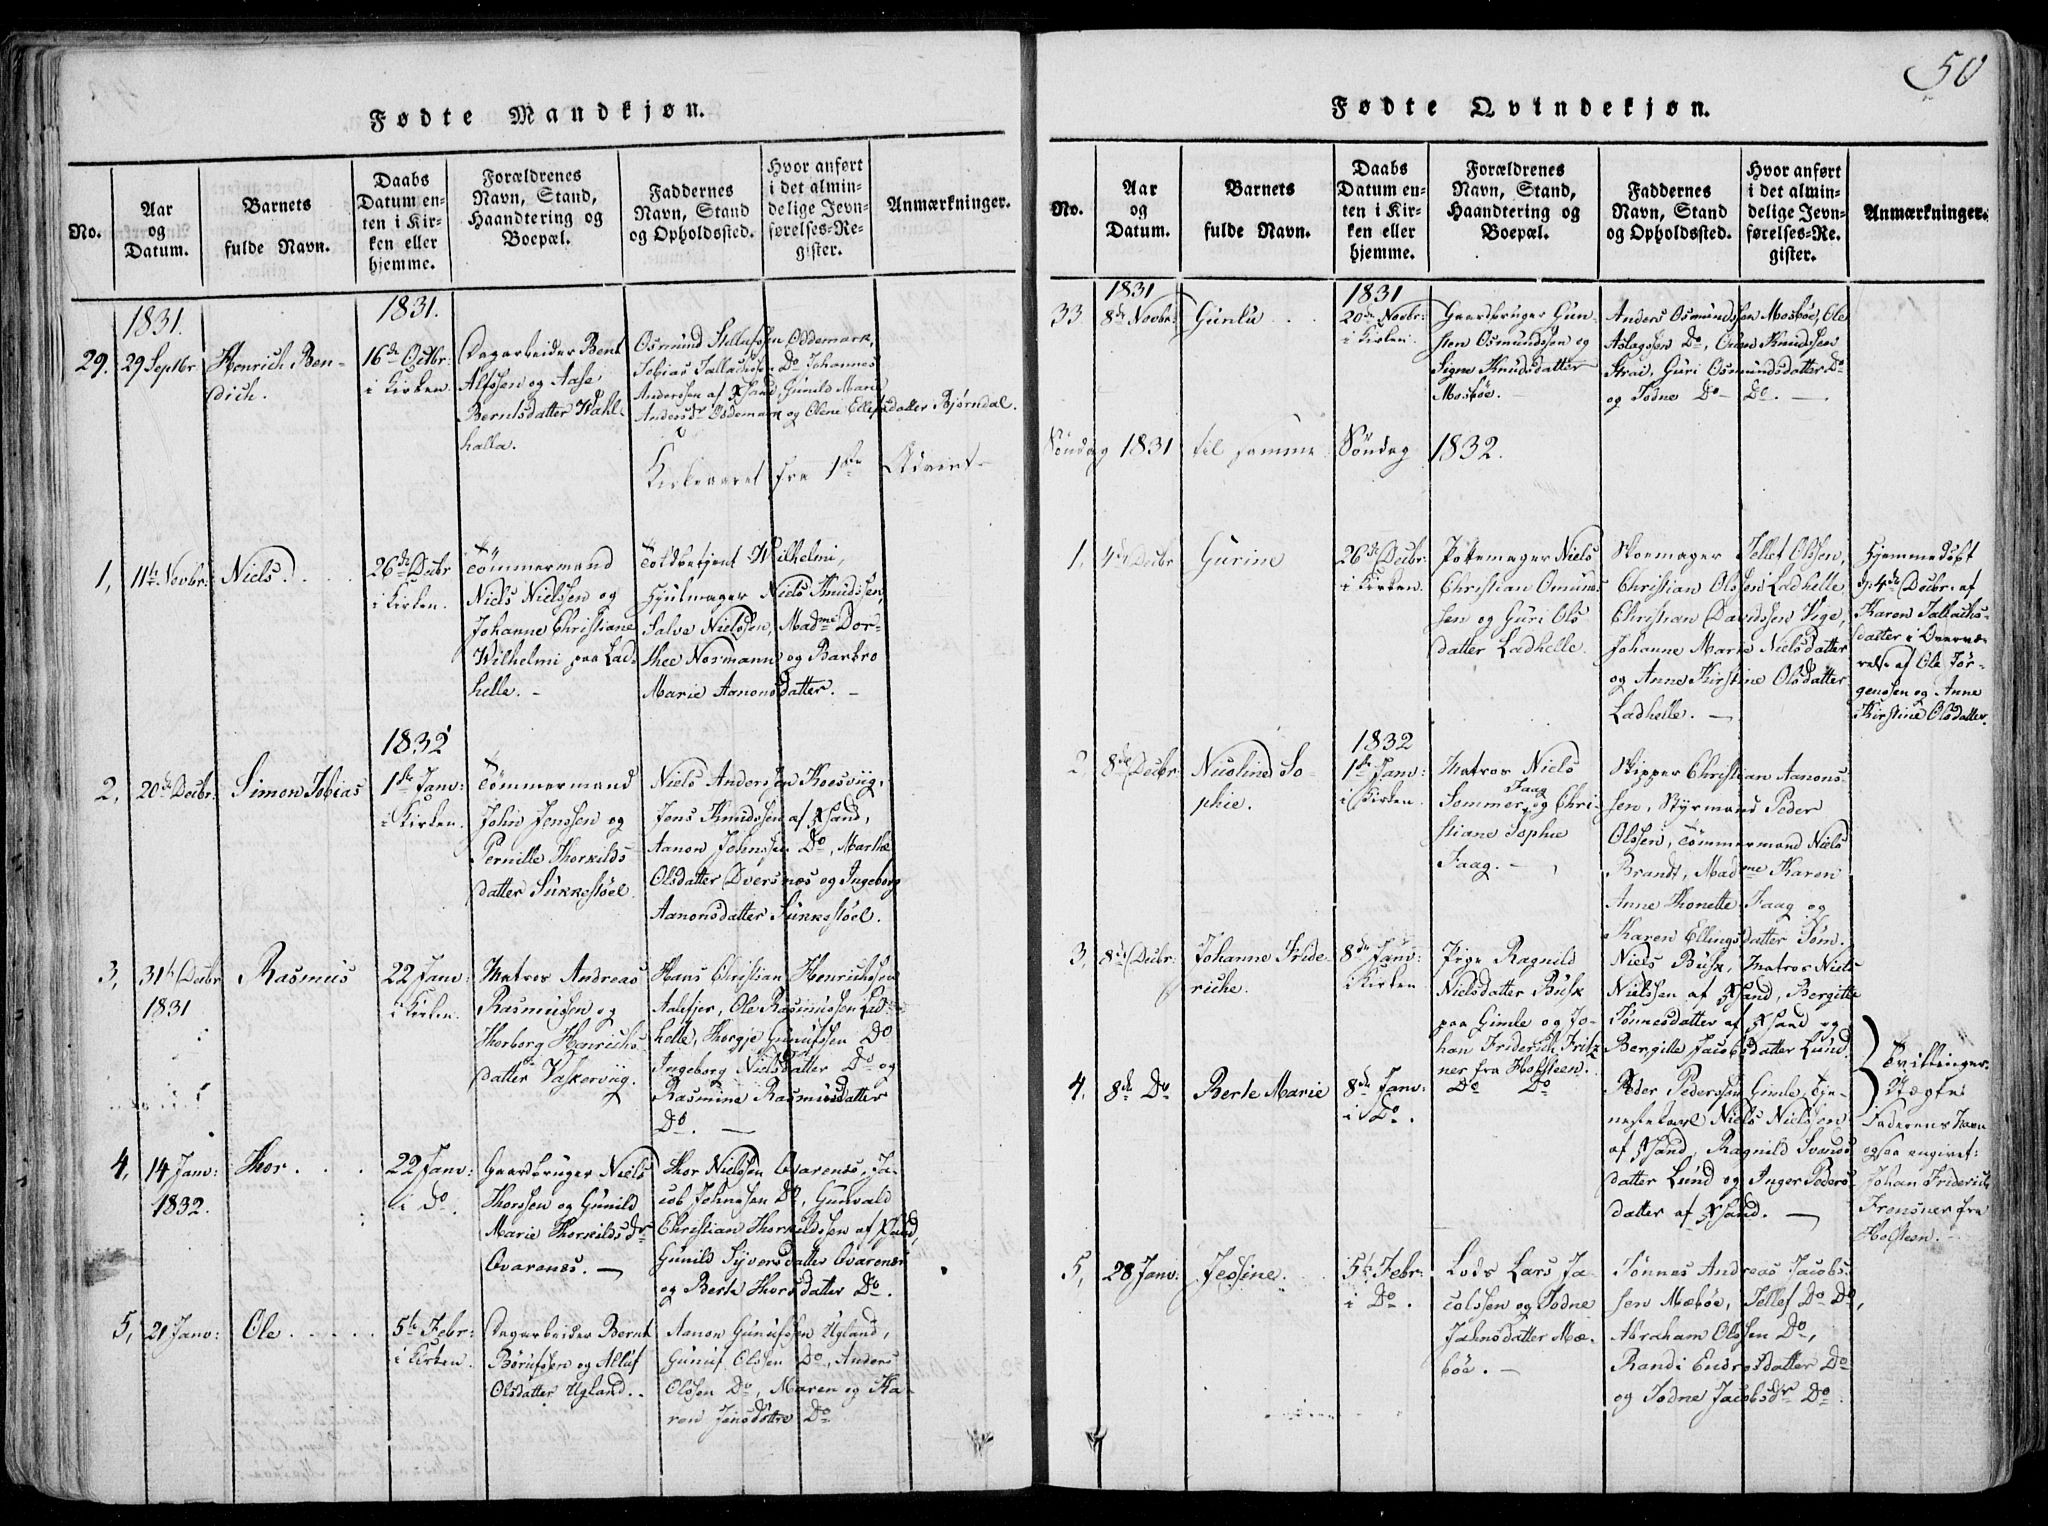 50
Fødte Mandkjøn.
No.
Aar
og
Datum.
Barnets
fulde Navn.
Daabs
Datum en-
ten i Kir-
ken eller
hjemme.
Forældrenes
Navn, Stand,
Haandtering og
Boepæl.
Faddernes
Navn, Stand
og Opholdssted.
Hvor anført
i det almin-
delige Jevn-
førelses-Re-
gister.
Anmærkninger.
1831.
1831.
29.
29 Septbr
Henrich Ben-
dich.
16de Octbr:
i Kirken
Dagarbeider Bent
Alfssen og Aase
Berntsdatter Wahl-
halla.
Osmund Oddemark,
Tobias Do Johannes
Anderssen af Xsand, Gunild Marie
Andersdr Oddemark og Oleni Ellefsdatter Bjørndal.
Kirkeaaret fra 1ste Advent-
1,
11te Novbr:
Niels.
26de Decbr
i Kirken.
Tömmermand
Niels Nielssen og
Johanne Christiane
Wilhelmi paa Lad-
helle. -
Toldbetjent Wilhelmi,
Hjulmager Niels Knudssen,
Salve Nielssen, Madme Dor-
thee Normann og Barbro
Marie Aanonsdatter. -
1832
2,
20de Decbr:
Simon Tobias
1ste Janv:
i Kirken.
Tömmermand
John Jenssen og
Pernille Thorkilds-
datter Sukkestöel.
Niels Anderssen Koesviig,
Jens Knudssen af Xsand,
Aanon Johnssen Do, Marthe
Olsdatter Dversnæs og Ingeborg
Aanonsdatter Sukkestöel.
3,
31te Decbr
1831
Rasmus
22 Janv:
i Kirken.
Matros Andreas
Rasmussen og
Thorborg Henrichs-
datter Vaskeviig.
Hans Christian Henrichssen
Aalefjer, Ole Rasmussen Lad-
helle, Thorgje Gunufssen Do
Ingeborg Nielsdatter Do og
Rasmine Rasmusdatter
Do. -
4,
14 Janv:
1832.
Thor.
22 Janv:
i Do.
Gaardbruger Niels
Thorssen og Gunild
Marie Thorkildsdr
Qvarenes. -
Thor Nielssen Qvarenes, Ja-
cob Johnssen Do, Gunvald
Christian Thorkildssen af Xsand,
Gunild Syversdatter Qvarenes
og Berte Thorsdatter Do.
5,
21 Janv:
Ole
5te Febr:
i Kirken.
Dagarbeider Bernt
Börufssen og Alluf
Olsdatter Ugland.
Aanon Gunufssen Ugland,
Gunuf Olssen Do, Anders
Olssen Do, Maren og Ka-
ren Jensdöttre Do
Fødte Qvindekjøn.
No.
Aar
og
Datum.
Barnets
fulde Navn.
Daabs
Datum en-
ten i Kir-
ken eller
hjemme.
Forældrenes
Navn, Stand,
Haandtering og
Boepæl.
Faddernes
Navn, Stand
og Opholdssted.
Hvor anført
i det almin-
delige Jevn-
førelses-Re-
gister.
Anmærkninger.
1831
1831
33
8de Novbr:
Gunlu
20de Novbr:
i Kirken.
Gaardbruger Gun-
sten Osmundssen og
Signe Knudsdatter
Mosböe.
Anders Osmundssen Mosböe, Ole
Aslagssen Do, Omen Knudssen
Strai, Guri Osmundsdatter Do
og Todne Do Do.
Söndag 1831 til samme Söndag 1832.
1,
4de Decbr
Gurine
26de Decbr:
i Kirken.
Pottemager Niels
Christian Omund-
sen og Guri Ols
datter Ladhelle.
Skoemager Tellef Olssen,
Christian Olssen Ladhelle,
Christian Davidssen Vige,
Johanne Marie Nielsdatter
og Anne Kirstine Olsdatter
Ladhelle. -
Hjemmedöbt
d. 4de Decbr. af
Karen Tallaks-
datter i Overvæ-
relse af Ole Tör-
genssen og Anne
Kirstine Olsdatter.
1832
2,
8de Decbr
Nicoline So-
phie.
1ste Janv:
i Kirken.
Matros Niels
Sommer og Chri-
Faag
stiane Sophie
Faag. -
Skipper Christian Aanons-
sen, Styrmand Peder
Olssen, Tömmermand Niels
Brandt, Madme Karen
Anne Thonette Faag og
Karen Ellingsdatter Töm.
3,
8de Decbr:
Johanne Fride-
riche.
8de Janv:
i Kirken
Pige Ragnild
Nielsdatter Busk
paa Gimle og Jo-
han Friderich Fritz
ner fra Holsteen.
Niels Busk, Matros Niels
Nielssen af Xsand, Bergitte
Tönnesdatter af Xsand og
Bergitte Jacobsdatter Lund.
4,
8de Do
Berte Marie
8de Janv:
i Do.
Do Do
Peder Pederssen Gimle, Tje-
nestekarl Niels Nielssen
af Xsand, Ragnild Svends
datter Lund og Inger Peders-
datter af Xsand. -
Tvillinger.
Uægte.
Faderens Navn
ogsaa angivet:
Johan Friderich
Fronsner fra
Holsteen. -
5,
28 Janv:
Jessine.
5te Febr:
i Do.
Lods Lars Ja-
cobssen og Todne
Jahnsdatter Mæ-
böe. -
Tönnes Andreas Jacobs-
sen Mæböe, Tellef Do Do,
Abraham Olssen Do,
Randi Endresdatter Do
og Todne Jacobsdr Do.